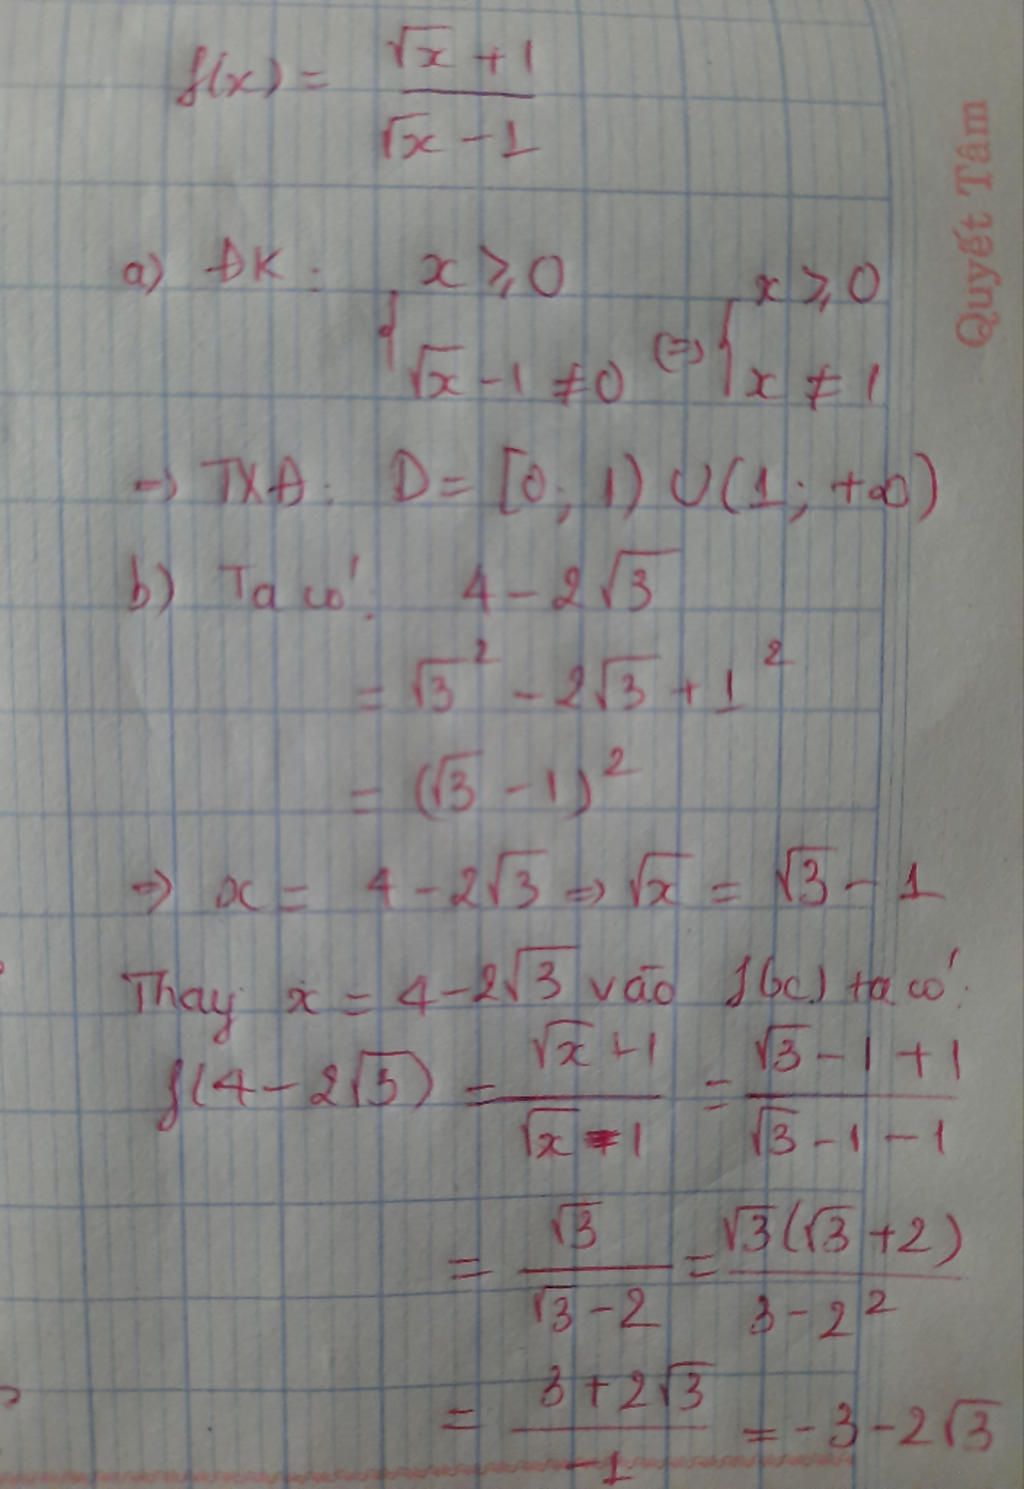 f(x) = (√x + 1)/(√x - 1)
a) ĐK: { x ⩾ 0 ; √x - 1 ≠ 0 (=> { x ⩾ 0 ; x ≠ 1
→ TXĐ: D = [0; 1) ∪ (1; +∞)
b) Ta có: 4 - 2√3
= √3² - 2√3 + 1²
= (√3 - 1)²
=> x = 4 - 2√3 => √x = √3 - 1
Thay x = 4 - 2√3 vào f(x) ta có:
f(4 - 2√3) = (√x + 1)/(√x - 1) = (√3 - 1 + 1)/(√3 - 1 - 1)
= √3/(√3 - 2) = √3(√3 + 2)/(3 - 2²)
= (3 + 2√3)/(-1) = -3 - 2√3
Quyết Tâm